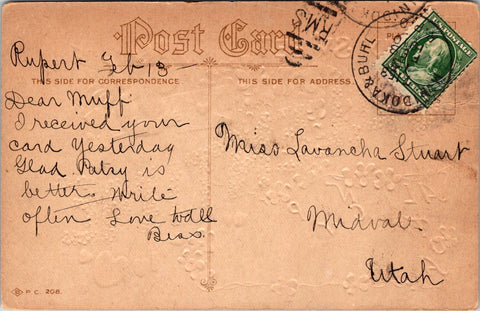 Post Card
RMS
U.S. POSTAGE
DOKA & BUHL
THIS SIDE FOR CORRESPONDENCE
THIS SIDE FOR ADDRESS
Rupert Feb 13
Dear Muff
I received your
card yesterday
Glad Patsy is
better. Write
often Love to all
Bess
Miss Lavancha Stuart
Midvale
Utah
P.C. 208.